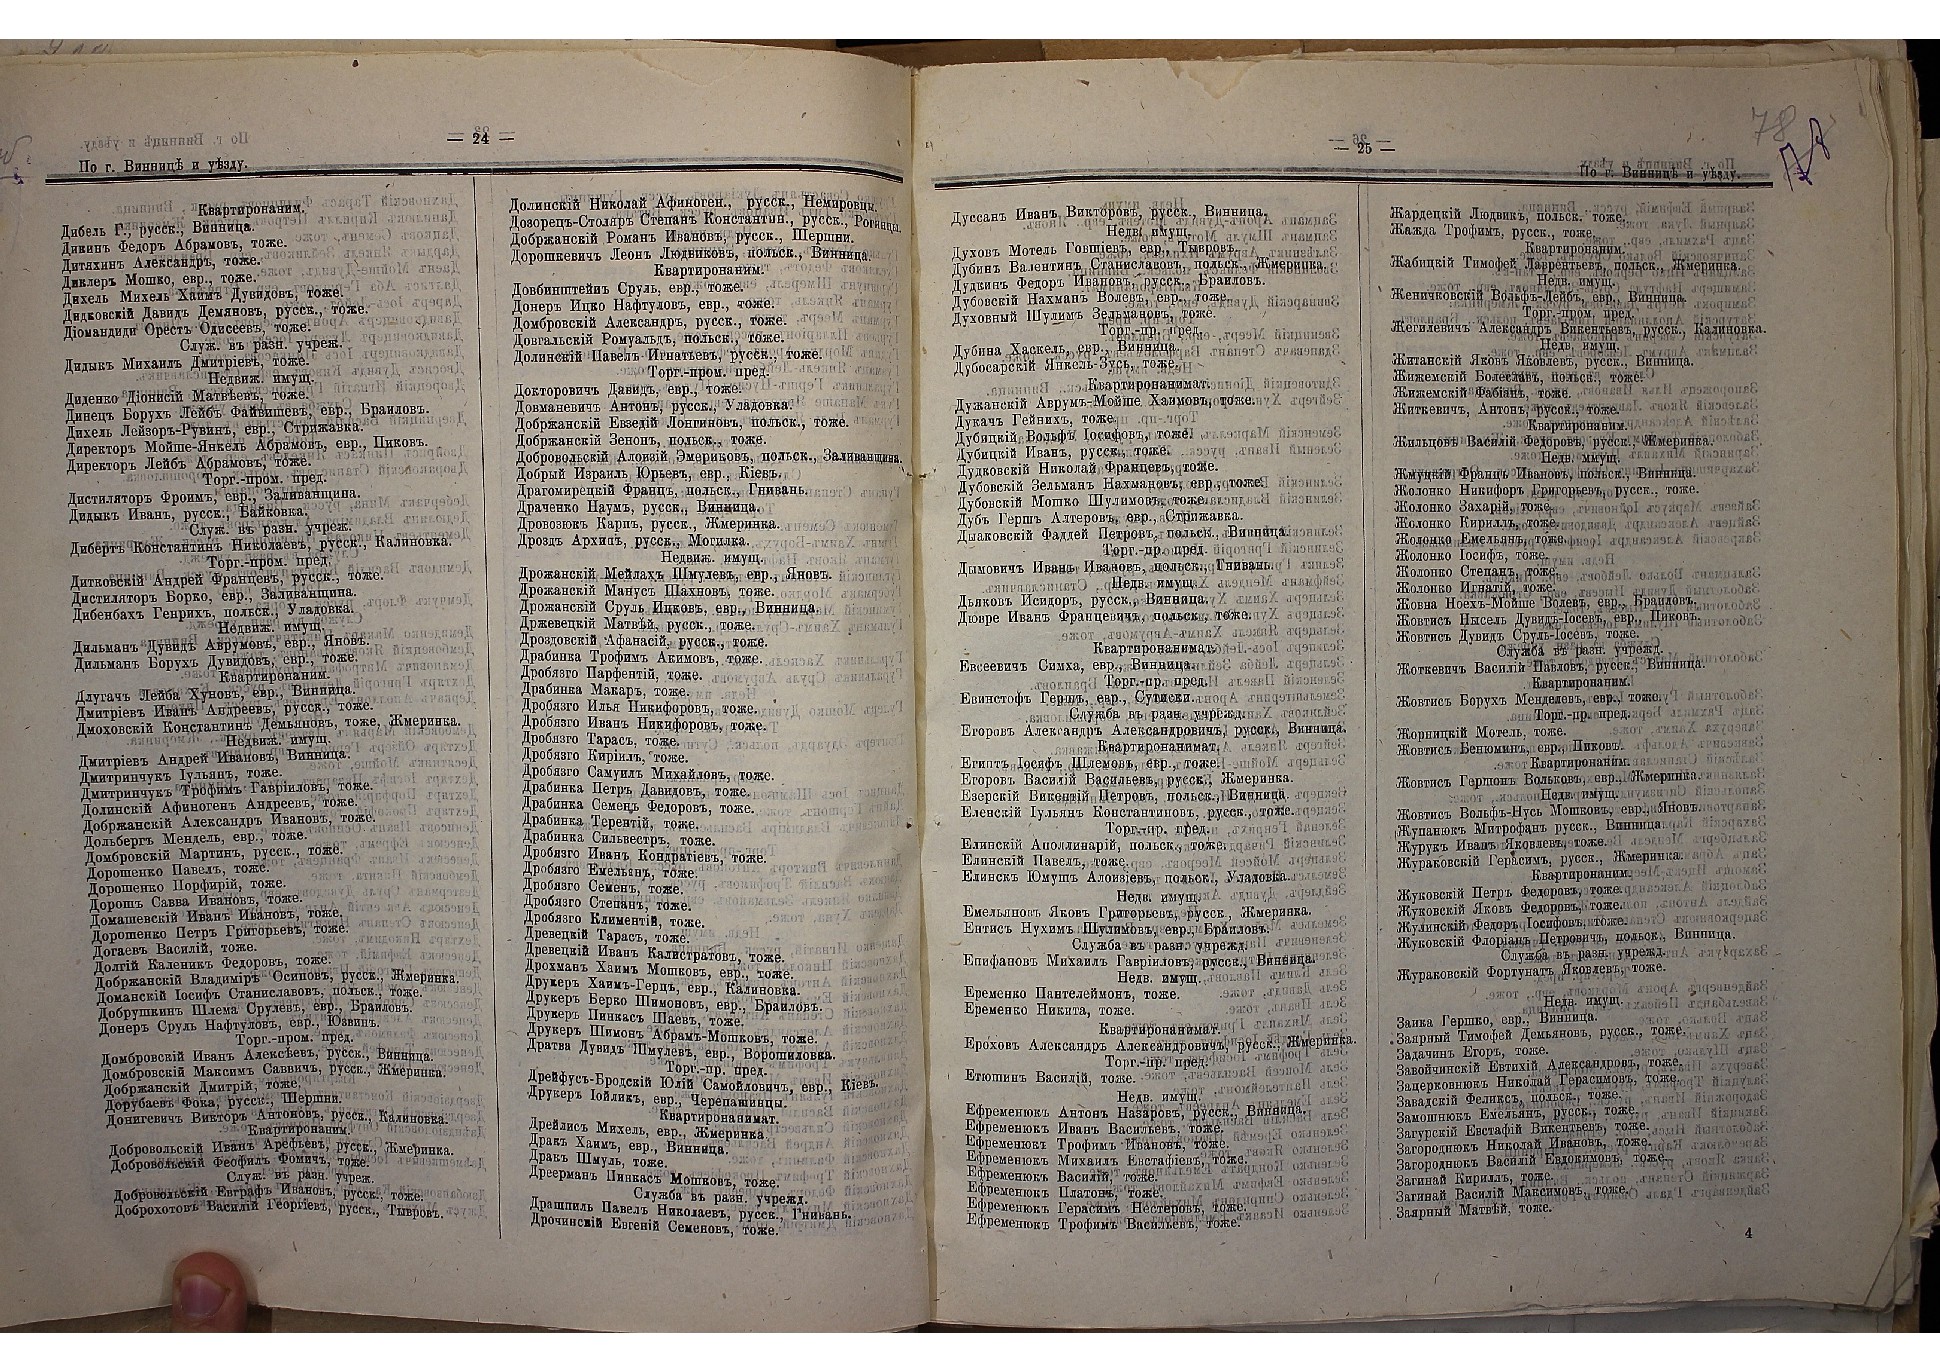 — 24 —
По г. Винницѣ и уѣзду.
Квартиронаним.
Дибель Г., русск., Винница.
Дивинъ Федоръ Абрамовъ, тоже.
Дитяхинъ Александръ, тоже.
Диклеръ Мошко, евр., тоже.
Дихель Михель Хаимъ Дувидовъ, тоже.
Дидковскій Давидъ Демяновъ, русск., тоже.
Діомандиди Орестъ Одисеевъ, тоже.
Служ. въ разн. учреж.
Дидыкъ Михаилъ Дмитріевъ, тоже.
Недвиж. имущ.
Диденко Діонисій Матвѣевъ, тоже.
Динецъ Борухъ Лейбъ Файвишевъ, евр., Браиловъ.
Дихель Лейзоръ-Рувинъ, евр., Стрижавка.
Директоръ Мойше-Янкель Абрамовъ, евр., Пиковъ.
Директоръ Лейбъ Абрамовъ, тоже.
Торг.-пром. пред.
Дистиляторъ Фроимъ, евр., Заливанщина.
Дидыкъ Иванъ, русск., Байковка.
Служ. въ разн. учреж.
Дибертъ Константинъ Николаевъ, русск., Калиновка.
Торг.-пром. пред.
Дитковскій Андрей Францевъ, русск., тоже.
Дистиляторъ Борко, евр., Заливанщина.
Дибенбахъ Генрихъ, польск., Уладовка.
Недвиж. имущ.
Дильманъ Дувидъ Аврумовъ, евр., Яновъ.
Дильманъ Борухъ Дувидовъ, евр., тоже.
Квартиронаним.
Длугачъ Лейба Хуновъ, евр., Винница.
Дмитріевъ Иванъ Андреевъ, русск., тоже.
Дмоховскій Константинъ Демьяновъ, тоже, Жмеринка.
Недвиж. имущ.
Дмитріевъ Андрей Ивановъ, Винница.
Дмитринчукъ Іульянъ, тоже.
Дмитринчукъ Трофимъ Гавріиловъ, тоже.
Долинскій Афиногенъ Андреевъ, тоже.
Добржанскій Александръ Ивановъ, тоже.
Дольбергъ Мендель, евр., тоже.
Домбровскій Мартинъ, русск., тоже.
Дорошенко Павелъ, тоже.
Дорошенко Порфирій, тоже.
Дорошъ Савва Ивановъ, тоже.
Домашевскій Иванъ Ивановъ, тоже.
Дорошенко Петръ Григорьевъ, тоже.
Догаевъ Василій, тоже.
Долгій Каленикъ Федоровъ, тоже.
Добржанскій Владиміръ Осиповъ, русск., Жмеринка.
Доманскій Іосифъ Станиславовъ, польск., тоже.
Добрушкинъ Шлема Срулевъ, евр., Браиловъ.
Донеръ Сруль Нафтуловъ, евр., Юзвинъ.
Торг.-пром. пред.
Домбровскій Иванъ Алексѣевъ, русск., Винница.
Домбровскій Максимъ Саввичъ, русск., Жмеринка.
Добржанскій Дмитрій, тоже.
Дорубаевъ Фока, русск., Шершни.
Донигевичъ Викторъ Антоновъ, русск., Калиновка.
Квартиронаним.
Добровольскій Иванъ Арефьевъ, русск., Жмеринка.
Добровольскій Феофилъ Фомичъ, тоже.
Служ. въ разн. учреж.
Добровольскій Евграфъ Ивановъ, русск., тоже.
Доброхотовъ Василій Георгіевъ, русск., Тывровъ.
Долинскій Николай Афиноген., русск., Немировцы.
Дозорецъ-Столяръ Степанъ Константин., русск., Рогинцы.
Добржанскій Романъ Ивановъ, русск., Шершни.
Дорошкевичъ Леонъ Людвиковъ, польск., Винница.
Квартиронаним.
Довбинштейнъ Сруль, евр., тоже.
Донеръ Ицко Нафтуловъ, евр., тоже.
Домбровскій Александръ, русск., тоже.
Довгальскій Ромуальдъ, польск., тоже.
Долинскій Павелъ Игнатьевъ, русск., тоже.
Торг.-пром. пред.
Докторовичъ Давидъ, евр., тоже.
Довманевичъ Антонъ, русск., Уладовка.
Добржанскій Евзедій Лонгиновъ, польск., тоже.
Добржанскій Зенонъ, польск., тоже.
Добровольскій Аловзій Эмериковъ, польск., Заливанщина.
Добрый Израиль Юрьевъ, евр., Кіевъ.
Драгомирецкій Францъ, польск., Гнивань.
Драченко Наумъ, русск., Винница.
Дровозюкъ Карпъ, русск., Жмеринка.
Дроздъ Архипъ, русск., Могилка.
Недвиж. имущ.
Дрожанскій Мейлахъ Шмулевъ, евр., Яновъ.
Дрожанскій Манусъ Шахновъ, тоже.
Дрожанскій Сруль Ицковъ, евр., Винница.
Држевецкій Матвѣй, русск., тоже.
Дроздовскій Афанасій, русск., тоже.
Драбинка Трофимъ Акимовъ, тоже.
Дробязго Парфентій, тоже.
Драбинка Макаръ, тоже.
Дробязго Илья Никифоровъ, тоже.
Дробязго Иванъ Никифоровъ, тоже.
Дробязго Тарасъ, тоже.
Дробязго Киріилъ, тоже.
Дробязго Самуилъ Михайловъ, тоже.
Драбинка Петръ Давидовъ, тоже.
Драбинка Семенъ Федоровъ, тоже.
Драбинка Терентій, тоже.
Драбинка Сильвестръ, тоже.
Дробязго Иванъ Кондратіевъ, тоже.
Дробязго Емельянъ, тоже.
Дробязго Семенъ, тоже.
Дробязго Степанъ, тоже.
Дробязго Климентій, тоже.
Древецкій Тарасъ, тоже.
Древецкій Иванъ Калистратовъ, тоже.
Дрохманъ Хаимъ Мошковъ, евр., тоже.
Друкеръ Хаимъ-Герцъ, евр., Калиновка.
Друкеръ Берко Шимоновъ, евр., Браиловъ.
Друкеръ Пинкасъ Шаевъ, тоже.
Друкеръ Шимонъ Абрамъ-Мошковъ, тоже.
Дратва Дувидъ Шмулевъ, евр., Ворошиловка.
Торг.-пр. пред.
Дрейфусъ-Бродскій Юлій Самойловичъ, евр., Кіевъ.
Друкеръ Іойликъ, евр., Черепашинцы.
Квартиронанимат.
Дрейлисъ Михель, евр., Жмеринка.
Дракъ Хаимъ, евр., Винница.
Дракъ Шмуль, тоже.
Дреерманъ Пинкасъ Мошковъ, тоже.
Служба въ разн. учрежд.
Драшпиль Павелъ Николаевъ, русск., Гнивань.
Дрочинскій Евгеній Семеновъ, тоже.
— 25 —
По г. Винницѣ и уѣзду.
78
Дуссанъ Иванъ Викторовъ, русск., Винница.
Недв. имущ.
Духовъ Мотель Говшіевъ, евр., Тывровъ.
Дубинъ Валентинъ Станиславовъ, польск., Жмеринка.
Дудкинъ Федоръ Ивановъ, русск., Браиловъ.
Дубовскій Нахманъ Волевъ, евр., тоже.
Духовный Шулимъ Зельмановъ, тоже.
Торг.-пр. пред.
Дубина Хаскель, евр., Винница.
Дубосарскій Янкель-Зусь, тоже.
Квартиронанимат.
Дужанскій Аврумъ-Мойше Хаимовъ, тоже.
Дукачъ Гейнихъ, тоже.
Дубицкій Вольфъ Іосифовъ, тоже.
Дубицкій Иванъ, русск., тоже.
Дудковскій Николай Францевъ, тоже.
Дубовскій Зельманъ Нахмановъ, евр., тоже.
Дубовскій Мошко Шулимовъ, тоже.
Дубъ Гершъ Алтеровъ, евр., Стрижавка.
Дыаковскій Фаддей Петровъ, польск., Винница.
Торг.-пр. пред.
Дымовичъ Иванъ Ивановъ, польск., Гнивань.
Недв. имущ.
Дьяковъ Исидоръ, русск., Винница.
Дювре Иванъ Францевичъ, польск., тоже.
Квартиронанимат.
Евсеевичъ Симха, евр., Винница.
Торг.-пр. пред.
Евинстофъ Гершъ, евр., Сутиски.
Служба въ разн. учрежд.
Егоровъ Александръ Александровичъ, русск., Винница.
Квартиронанимат.
Египтъ Іосифъ Шлемовъ, евр., тоже.
Егоровъ Василій Васильевъ, русск., Жмеринка.
Езерскій Викентій Петровъ, польск., Винница.
Еленскій Іульянъ Константиновъ, русск., тоже.
Торг.-пр. пред.
Елинскій Аполлинарій, польск., тоже.
Елинскій Павелъ, тоже.
Елинск Юмушъ Алоизіевъ, польск., Уладовка.
Недв. имущ.
Емельяновъ Яковъ Григорьевъ, русск., Жмеринка.
Ентисъ Нухимъ Шулимовъ, евр., Браиловъ.
Служба въ разн. учрежд.
Епифановъ Михаилъ Гавріиловъ, русск., Винница.
Недв. имущ.
Еременко Пантелеймонъ, тоже.
Еременко Никита, тоже.
Квартиронанимат.
Ероховъ Александръ Александровичъ, русск., Жмеринка.
Торг.-пр. пред.
Етюшинъ Василій, тоже.
Недв. имущ.
Ефременюкъ Антонъ Назаровъ, русск., Винница.
Ефременюкъ Иванъ Васильевъ, тоже.
Ефременюкъ Трофимъ Ивановъ, тоже.
Ефременюкъ Михаилъ Евстафіевъ, тоже.
Ефременюкъ Василій, тоже.
Ефременюкъ Платонъ, тоже.
Ефременюкъ Герасимъ Нестеровъ, тоже.
Ефременюкъ Трофимъ Васильевъ, тоже.
Жардецкій Людвикъ, польск., тоже.
Жажда Трофимъ, русск., тоже.
Квартиронаним.
Жабицкій Тимофей Лаврентьевъ, польск., Жмеринка.
Недв. имущ.
Женичковскій Вольфъ-Лейбъ, евр., Винница.
Торг.-пром. пред.
Жегилевичъ Александръ Викентьевъ, русск., Калиновка.
Недв. имущ.
Житанскій Яковъ Яковлевъ, русск., Винница.
Жижемскій Болеславъ, польск., тоже.
Жижемскій Фабіянъ, тоже.
Житкевичъ, Антонъ, русск., тоже.
Квартиронаним.
Жильцовъ Василій Федоровъ, русск., Жмеринка.
Недв. имущ.
Жмуцкій Францъ Ивановъ, польск., Винница.
Жолонко Никифоръ Григорьевъ, русск., тоже.
Жолонко Захарій, тоже.
Жолонко Кириллъ, тоже.
Жолонко Емельянъ, тоже.
Жолонко Іосифъ, тоже.
Жолонко Степанъ, тоже.
Жолонко Игнатій, тоже.
Жовна Ноехъ-Мойше Волевъ, евр., Браиловъ.
Жовтисъ Нысель Дувидъ-Іосевъ, евр., Пиковъ.
Жовтисъ Дувидъ Сруль-Іосевъ, тоже.
Служба въ разн. учрежд.
Жоткевичъ Василій Павловъ, русск., Винница.
Квартиронаним.
Жовтисъ Борухъ Менделевъ, евр., тоже.
Торг.-пр. пред.
Жорницкій Мотель, тоже.
Жовтисъ Бенюминъ, евр., Пиковъ.
Квартиронаним.
Жовтисъ Гершонъ Вольковъ, евр., Жмеринка.
Недв. имущ.
Жовтисъ Вольфъ-Нусь Мошковъ, евр., Яновъ.
Жупанюкъ Митрофанъ русск., Винница.
Журукъ Иванъ Яковлевъ, тоже.
Жураковскій Герасимъ, русск., Жмеринка.
Квартиронаним.
Жуковскій Петръ Федоровъ, тоже.
Жуковскій Яковъ Федоровъ, тоже.
Жулинскій Федоръ Іосифовъ, тоже.
Жуковскій Флоріанъ Петровичъ, польск., Винница.
Служба въ разн. учрежд.
Жураковскій Фортунатъ Яковлевъ, тоже.
Недв. имущ.
Заика Гершко, евр., Винница.
Заярный Тимофей Демьяновъ, русск., тоже.
Задачинъ Егоръ, тоже.
Завойчинскій Евтихій Александровъ, тоже.
Зацерковнюкъ Николай Герасимовъ, тоже.
Завадскій Феликсъ, польск., тоже.
Замошнюкъ Емельянъ, русск., тоже.
Загурскій Евстафій Викентьевъ, тоже.
Загороднюкъ Николай Ивановъ, тоже.
Загороднюкъ Василій Евдокимовъ, тоже.
Загинай Кириллъ, тоже.
Загинай Василій Максимовъ, тоже.
Заярный Матвѣй, тоже.
4